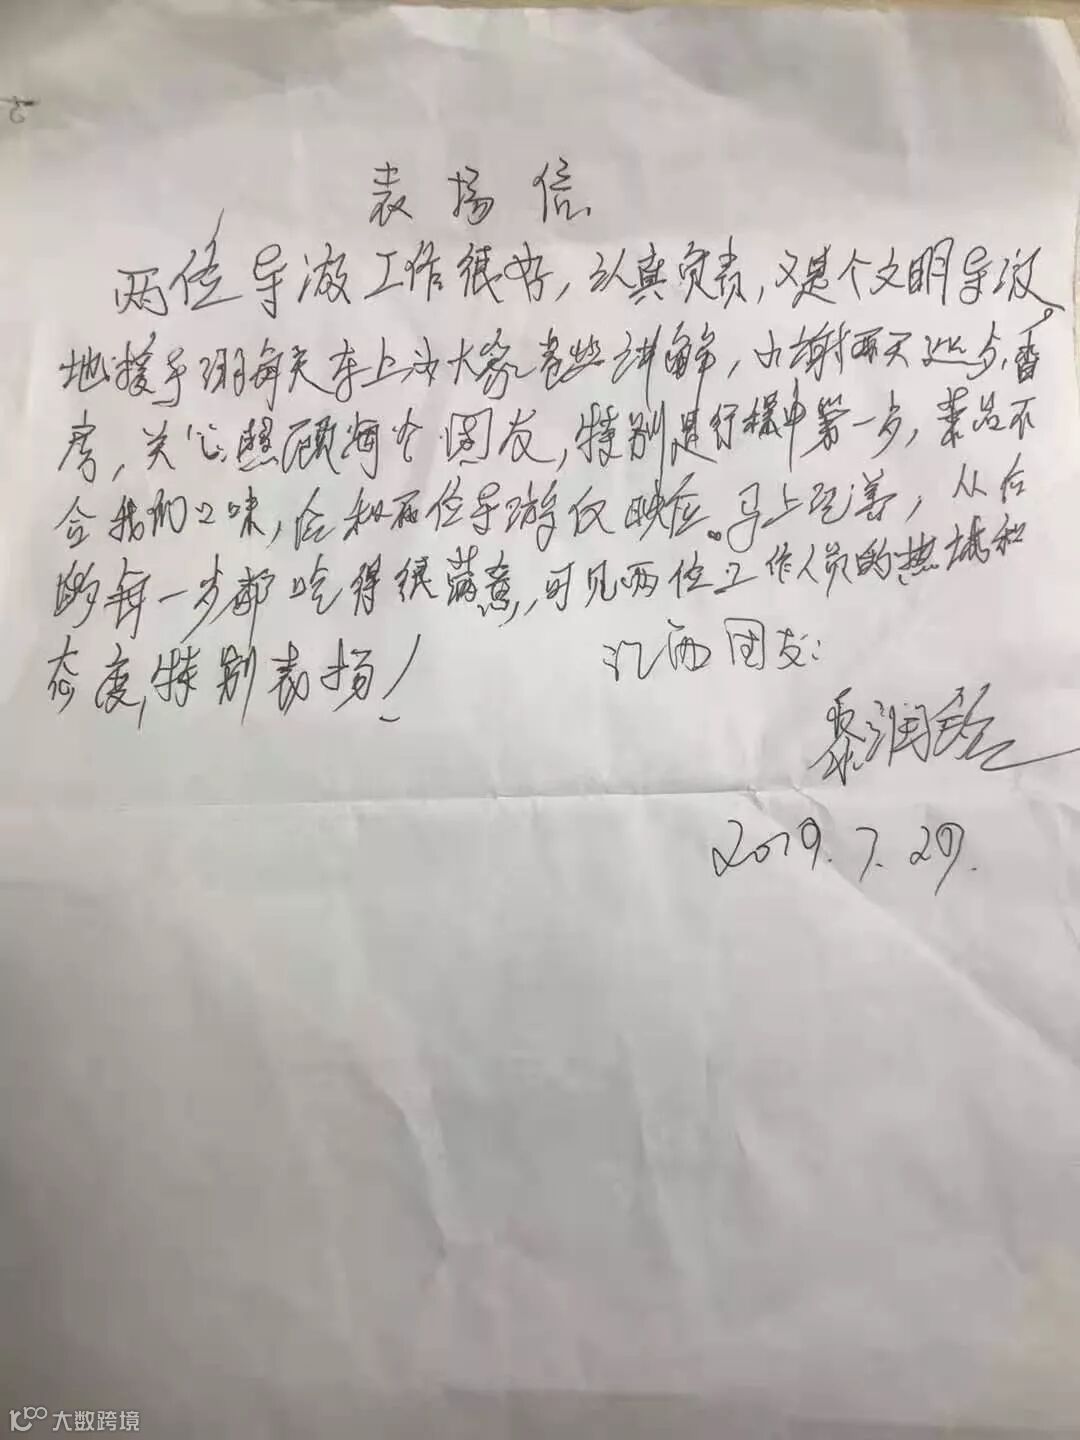 表扬信
两位导游工作很好,认真负责,又是个文明导游。
地接导游每天车上为大家讲解,小谢天查
房,关心照顾每个团友,特别是行程中第一步,菜不
合我们口味,会和两位导游反映应。马上完善,从后
的每一步都吃得很满意,可见两位工作人员的热诚和
态度,特别表扬!
江西团友:
润
2019.7.29.
大数跨境